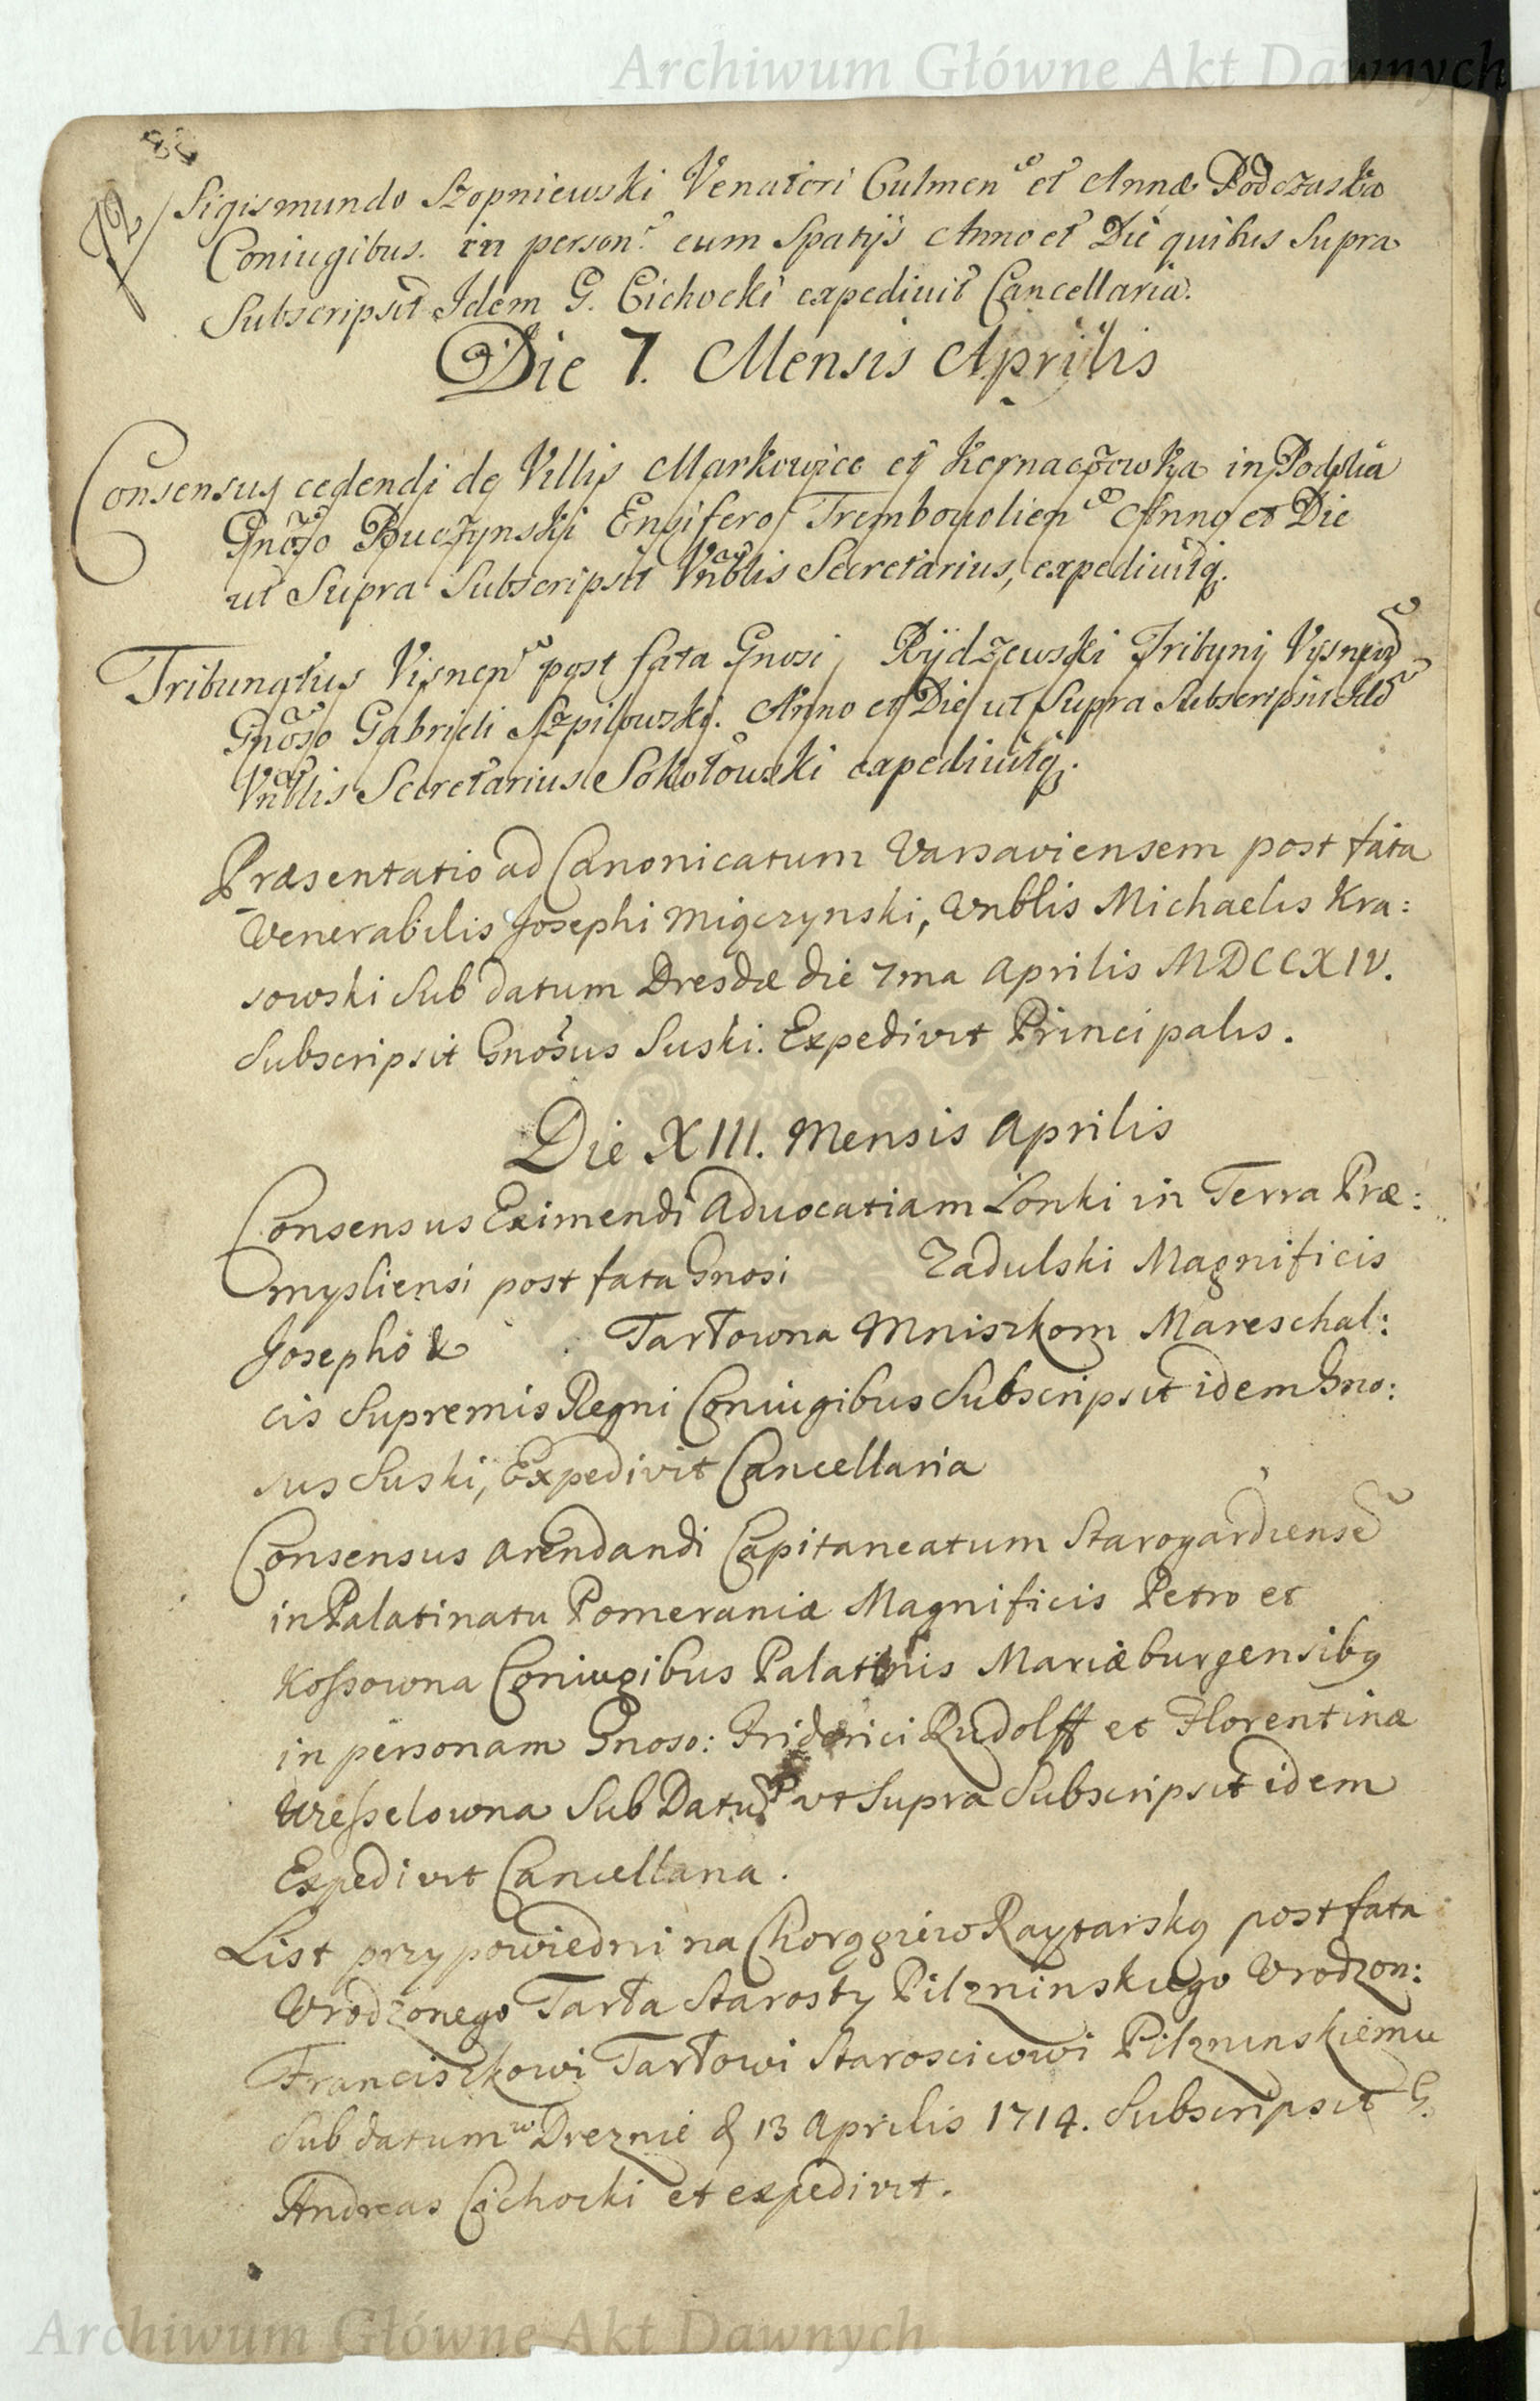 Archiwum Główne Akt Dawnych
72
Sigismundo Szopniewski Venatori Culmen et Annæ Podczaska
Coniugibus. in person. cum Spatijs Anno et Die quibus Supra
Subscripsit Idem G. Cichocki expedivit Cancellaria.
Die 7. Mensis Aprilis
Consensus cedendi de Villis Markowice et Kernaczowka in Podolia
Gnoso Buczynski Ensifero Trembowolien Anno et Die
ut Supra Subscripsit Vnblis Secretarius, expeditq.
Tribunatus Visnen post fata Gnosi Rÿdzewski Tribuni Visnen
Gnoso Gabrieli Szpilowski. Anno et Die ut Supra Subscripsit
Vnblis Secretarius Sokołowski expeditq.
Præsentatio ad Canonicatum Varsaviensem post fata
Venerabilis Josephi Migczynski, Vnblis Michaelis Kra:
sowski Sub datum Dresdæ die 7ma Aprilis MDCCXIV.
Subscripsit Gnosus Suski. Expedivit Principalis.
Die XIII. Mensis Aprilis
Consensus Eximendi Advocatiam Lonki in Terra Præ:
mysliensi post fata Gnosi Zadulski Magnificis
Josepho & Tarłowna Mniszkom Mareschal:
cis Supremis Regni Coniugibus Subscripsit idem Gno:
sus Suski, Expedivit Cancellaria
Consensus arendandi Capitaneatum Starogardiense
in Palatinatu Pomeraniæ Magnificis Petro et
Kossowna Coniugibus Palatinis Mariæburgensibq
in personam Gnoso: Friderici Rudolff et Florentinæ
Wesselowna Sub Datu vt Supra Subscripsit idem
Expedivit Cancellaria.
List przypowiedni na Chorągiew Raytarską post fata
Vrodzonego Tarła Starosty Pilzninskiego Vrodzon:
Franciszkowi Tarłowi Staroscicowi Pilzninskiemu
Sub datum w Dreznie d 13 Aprilis 1714. Subscripsit G.
Andreas Cichocki et expedivit.
Archiwum Główne Akt Dawnych